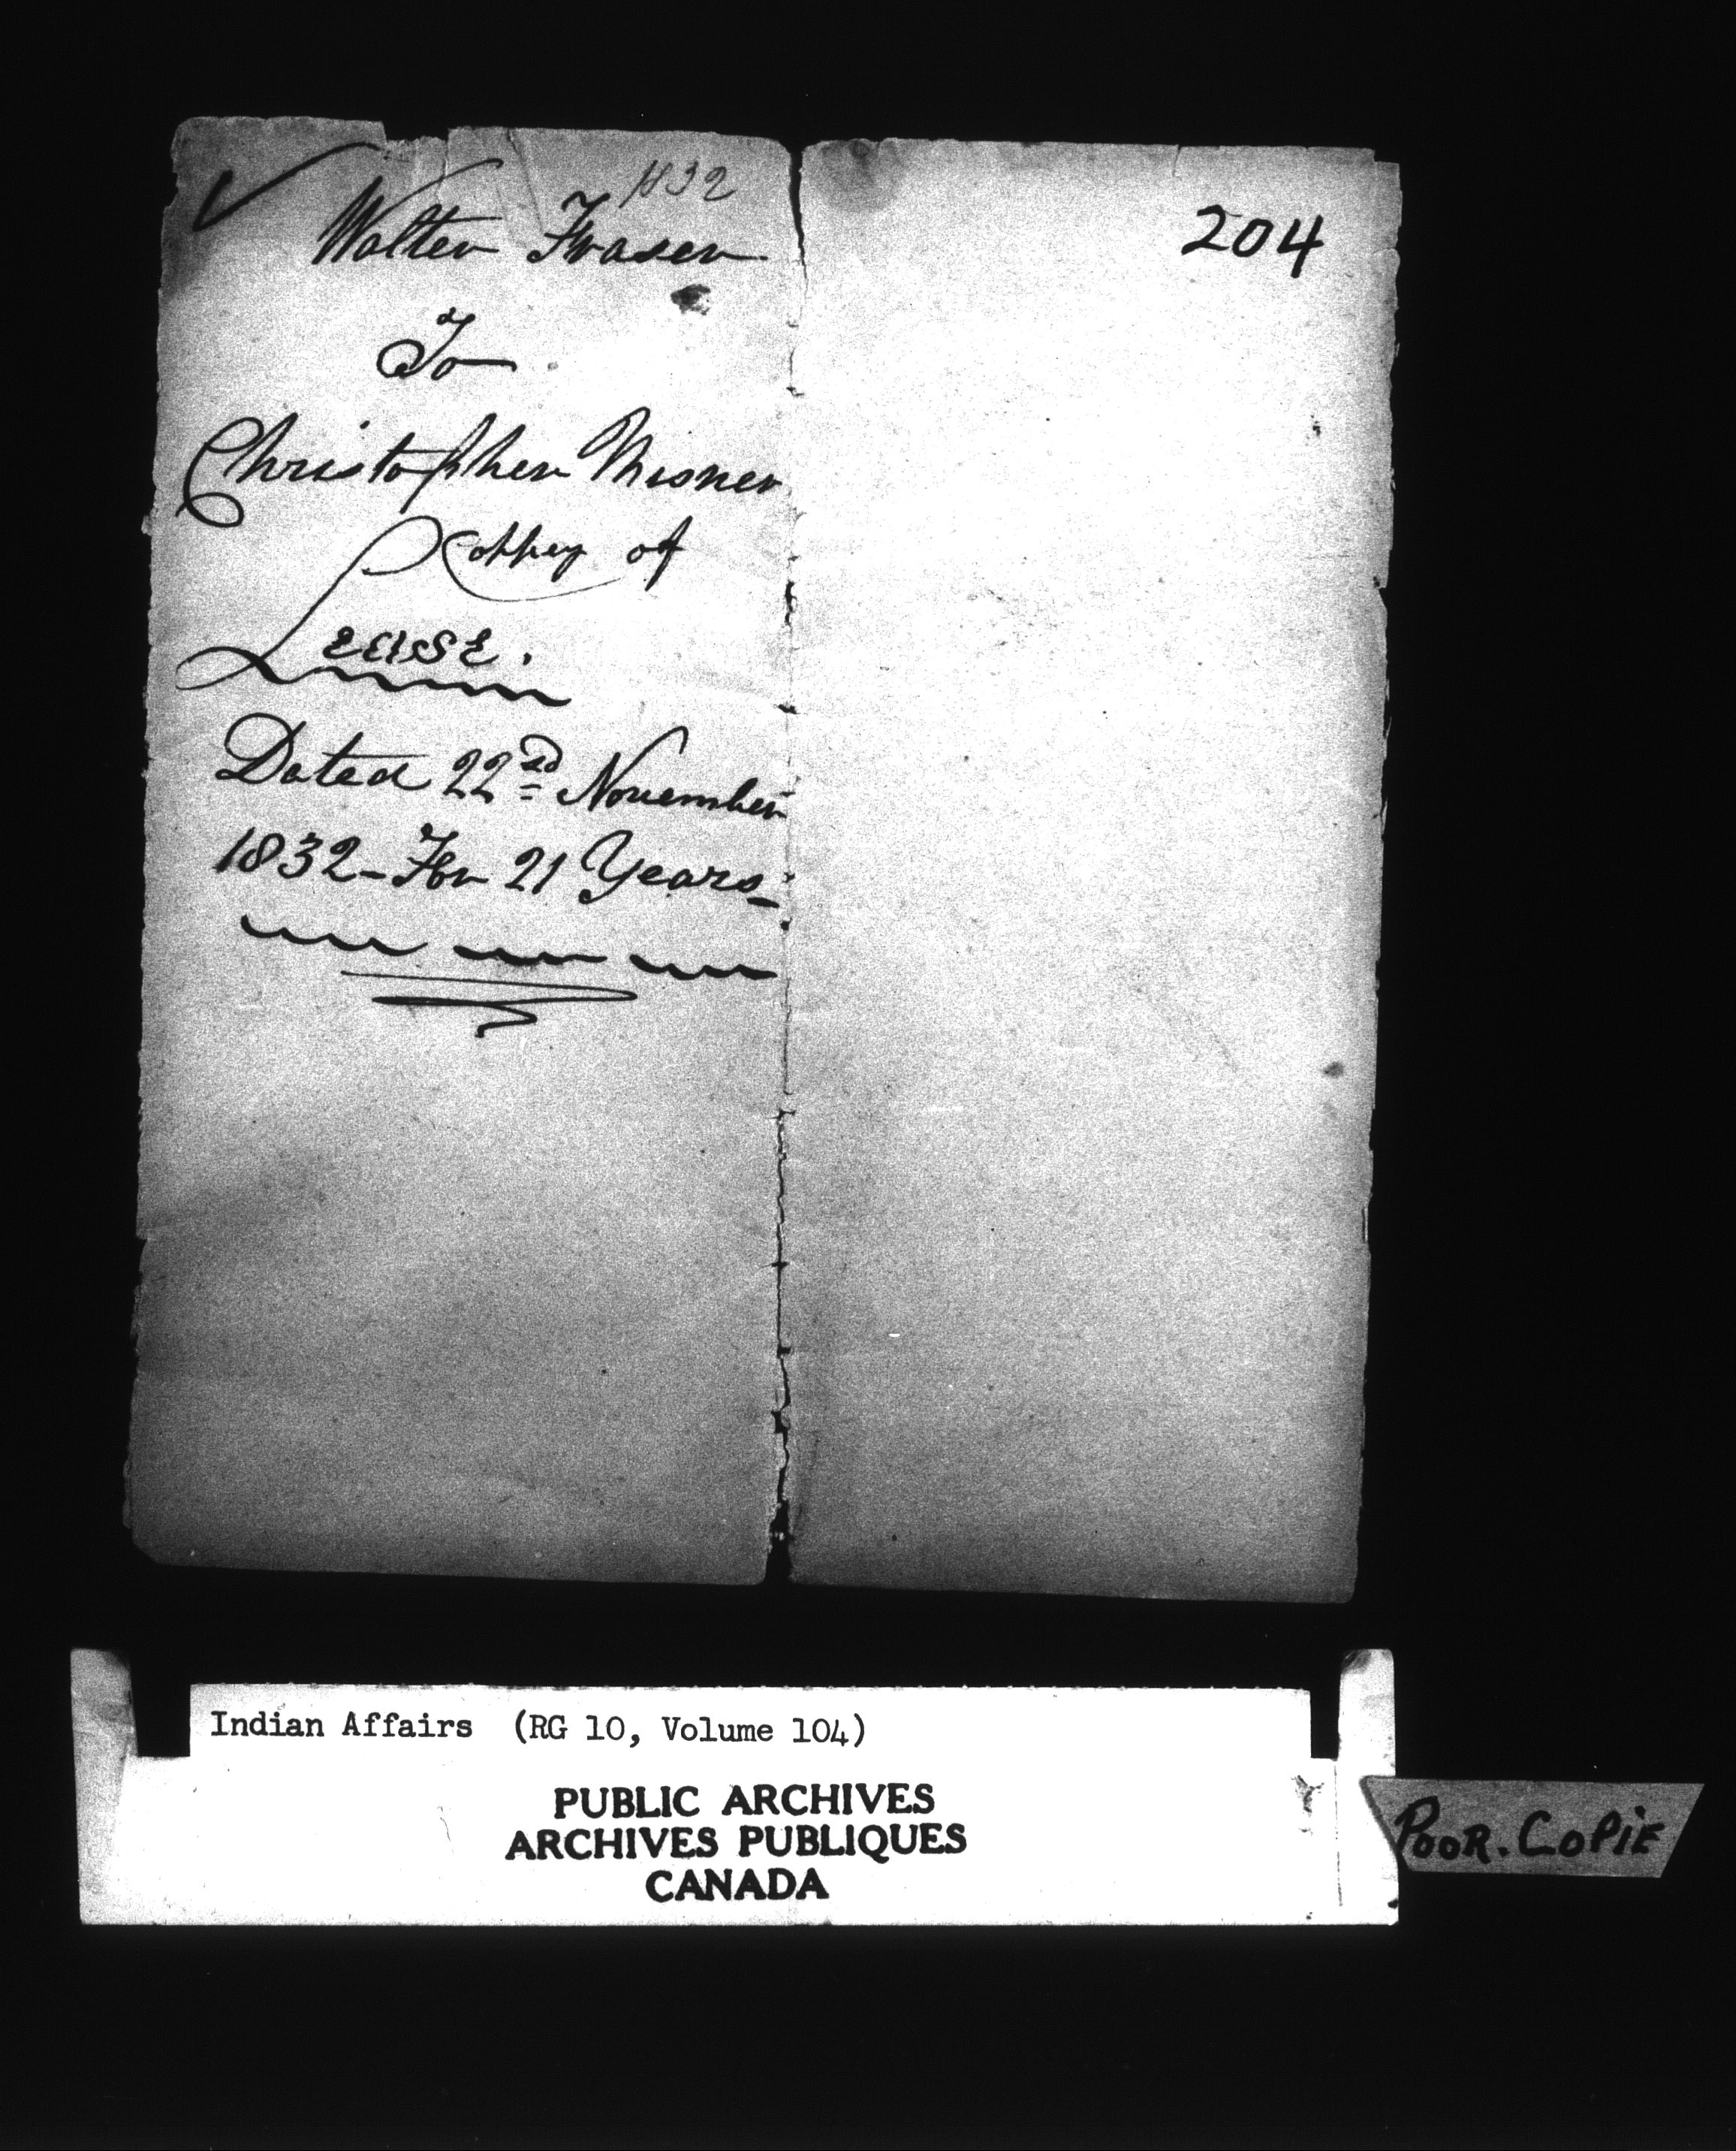 1832
Walter Fraser
To
Christopher Misner
Coppey of
Lease.
Dated 22nd November
1832 - For 21 Years
204
Indian Affairs (RG 10, Volume 104)
PUBLIC ARCHIVES
ARCHIVES PUBLIQUES
CANADA
POOR. COPiE